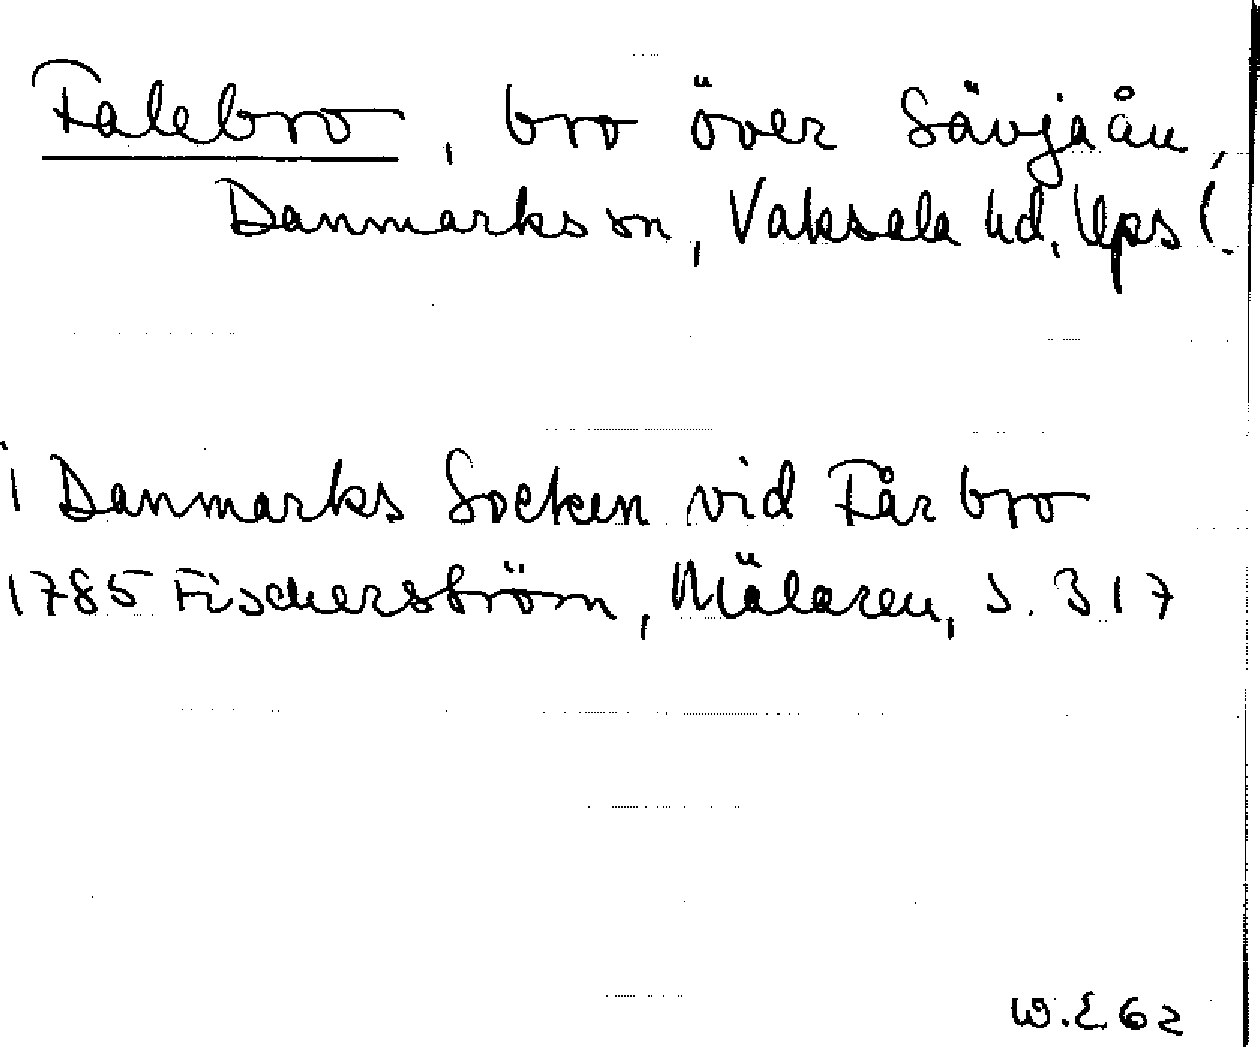 Falebro, bro över Sävjaån,
Danmarks sn, Vaksala hd, Upsl.
i Danmarks Socken vid Fårbro
1785 Fischerström, Mälaren, S. 317
W.E 62